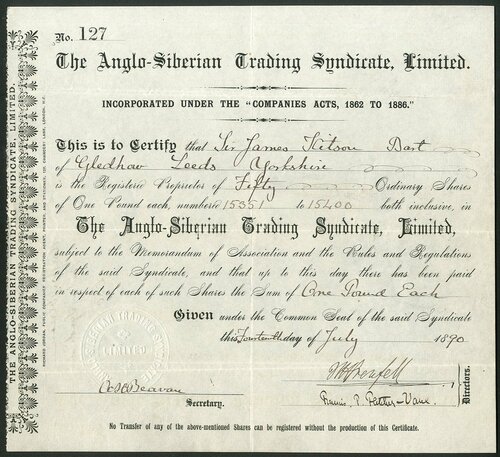 No. 127
The Anglo-Siberian Trading Syndicate, Limited.
INCORPORATED UNDER THE "COMPANIES ACTS, 1862 TO 1886."
This is to Certify that Sir James Kitson Bart
of Gledhow Leeds Yorkshire
is the Registered Proprietor of Fifty Ordinary Shares
of One Pound each, numbered 15351 to 15400 both inclusive, in
The Anglo-Siberian Trading Syndicate, Limited,
subject to the Memorandum of Association and the Rules and Regulations
of the said Syndicate, and that up to this day there has been paid
in respect of each of such Shares the Sum of One Pound Each
Given under the Common Seal of the said Syndicate
this Fourteenth day of July 1890
Beavan
Secretary.
Directors.
No Transfer of any of the above-mentioned Shares can be registered without the production of this Certificate.
THE ANGLO-SIBERIAN TRADING SYNDICATE, LIMITED.
LIMITED